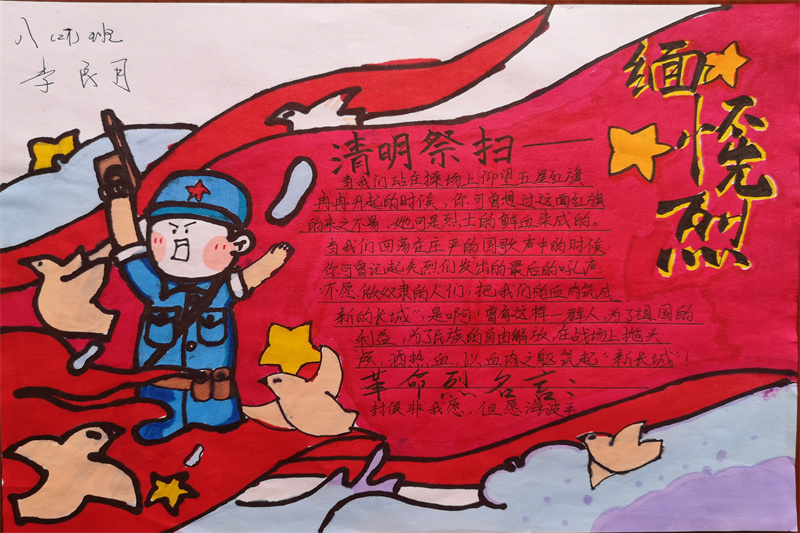 八(4)班
李民月
缅怀先烈
清明祭扫——
当我们站在操场上仰望五星红旗
冉冉升起的时候,你可曾想过这面红旗
的来之不易,她可是烈士的鲜血染成的。
当我们回荡在庄严的国歌声中的时候,
你可曾记起先烈们发出的最后的吼声
不愿做奴隶的人们,把我们的血肉筑成
新的长城”,是啊!曾有这样一群人,为了祖国的
利益,为了民族的自由解放,在战场上抛头
颅,洒热血,以血肉之躯筑起“新长城”!
革命烈名言:
封侯非我愿,但愿海波平